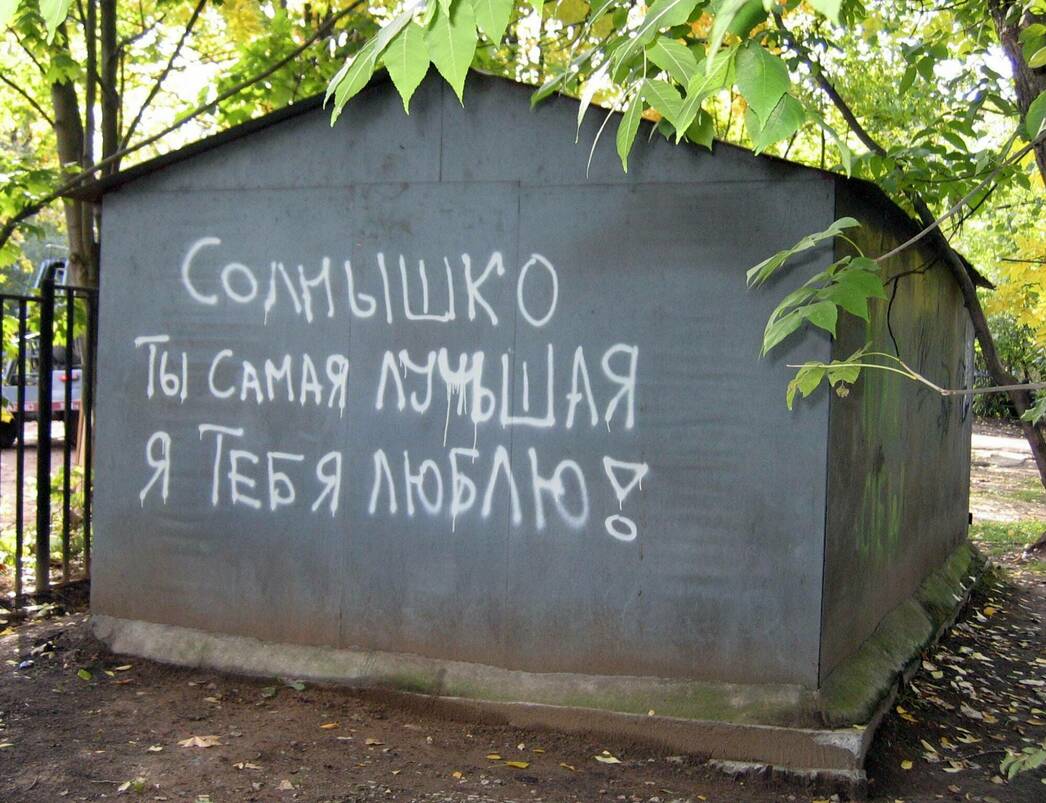 Солнышко
Ты самая лучьшая
я Тебя люблю!